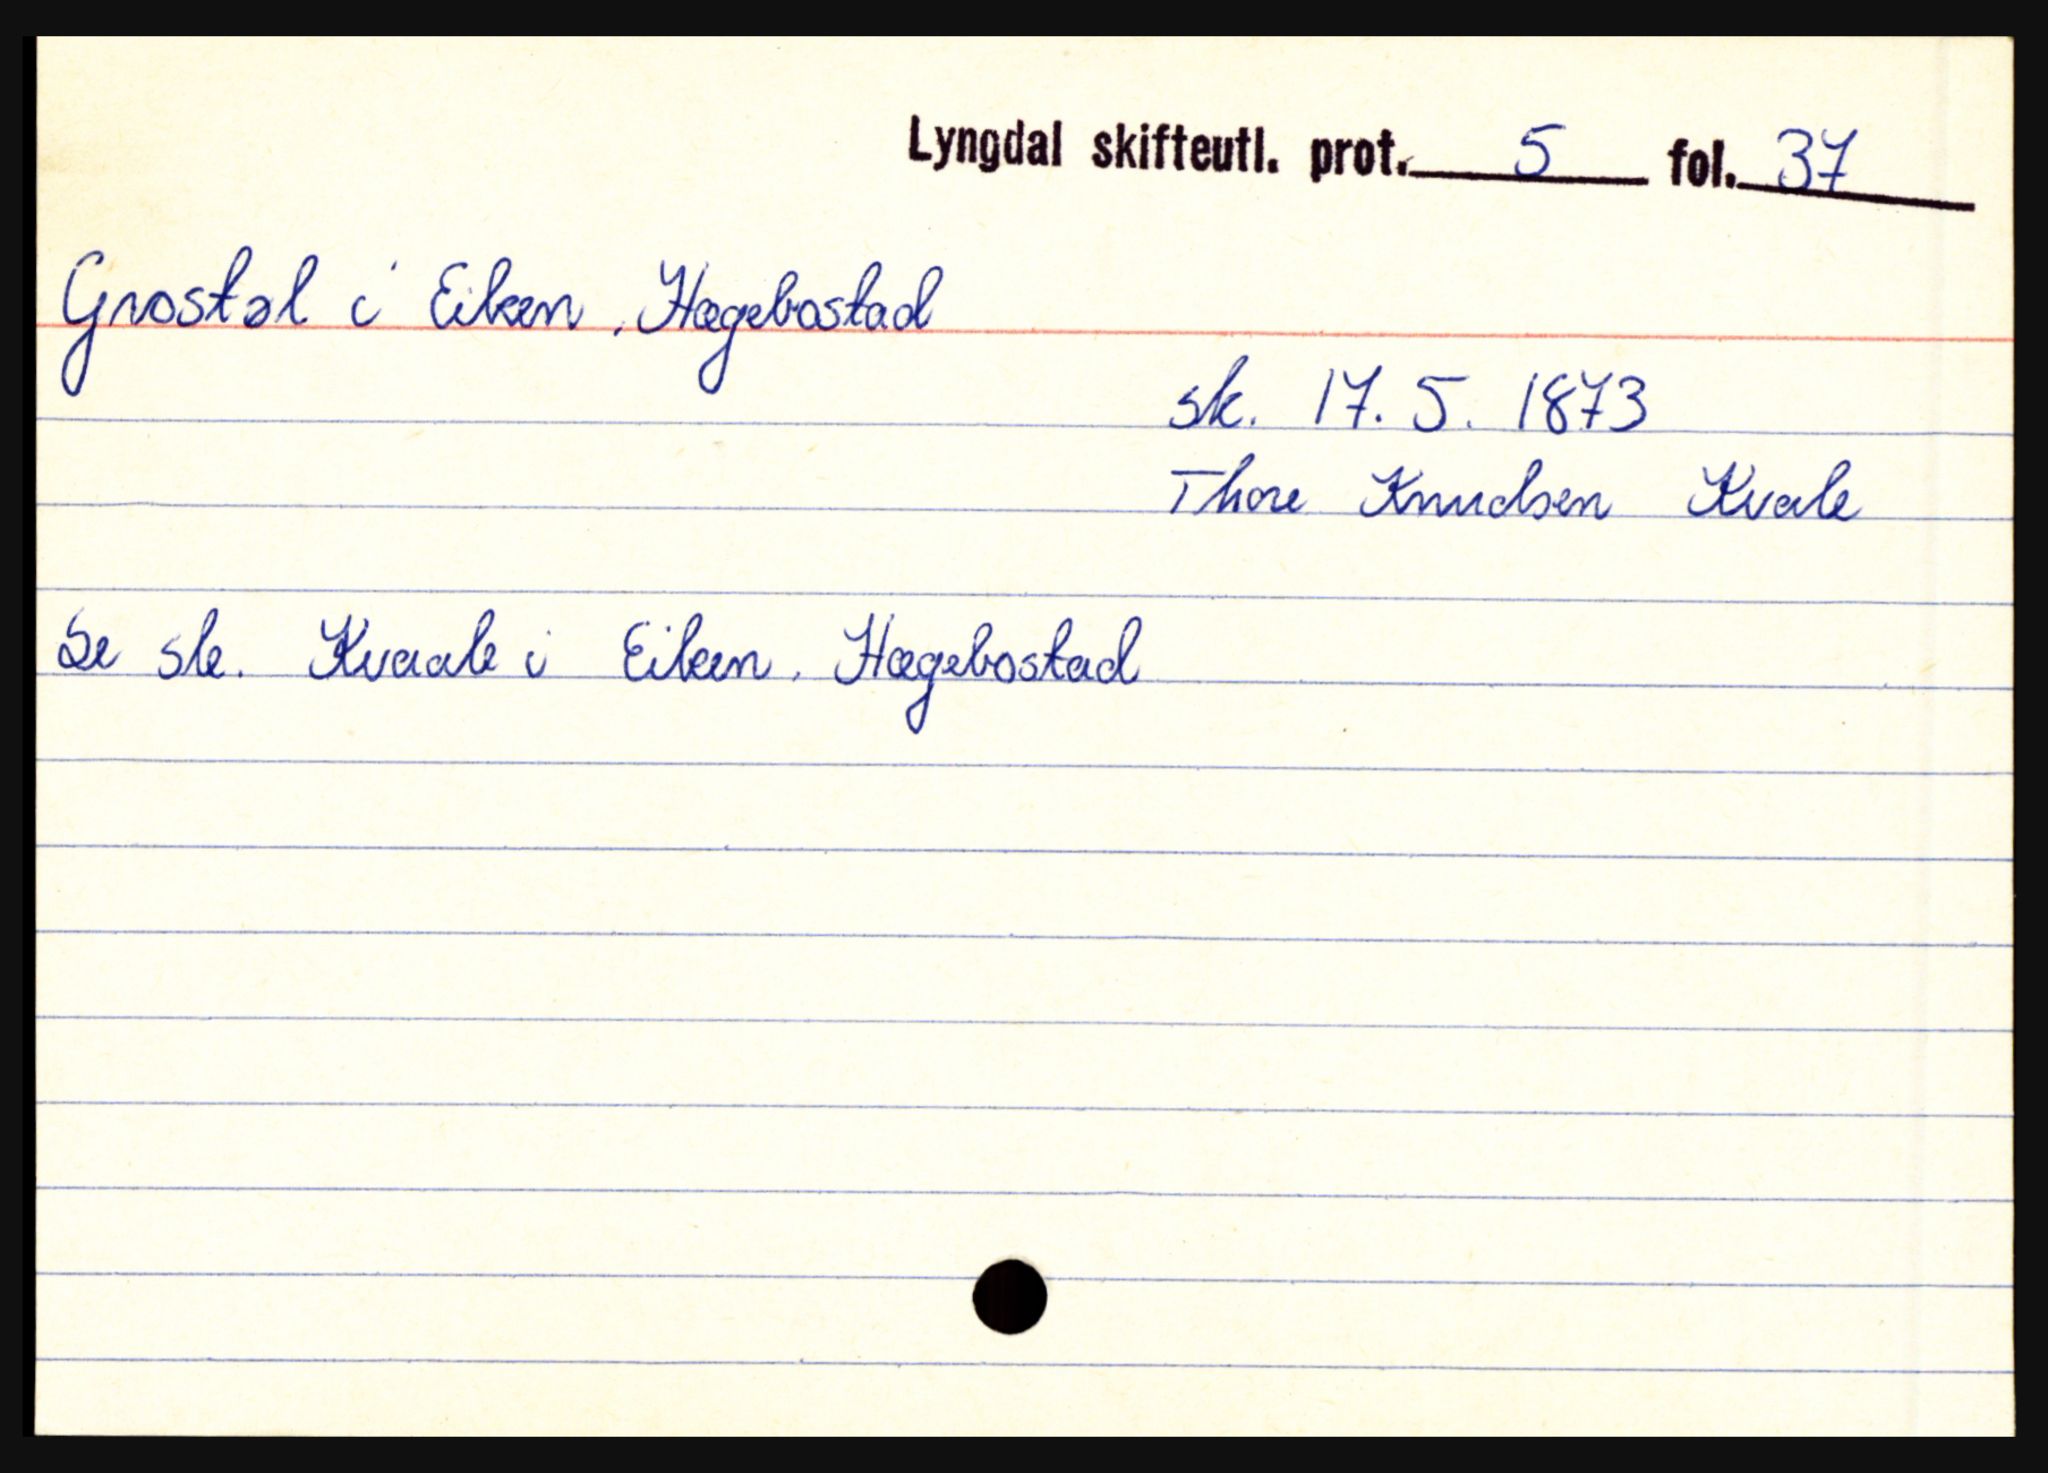 Lyngdal skifteutl. prot. 5 fol. 37
Grostøl i Eiken, Hægebostad
sk. 17. 5. 1873
Thore Knudsen Kvale
Se sk. Kvaale i Eiken, Hægebostad